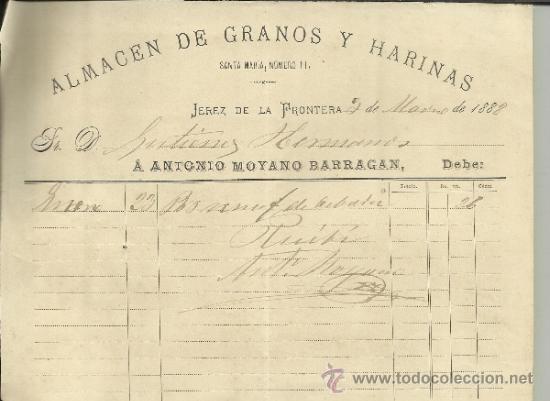 ALMACEN DE GRANOS Y HARINAS
SANTA MARIA, NÚMERO 11.
JEREZ DE LA FRONTERA 2 de Marzo de 1888
Sr. D. Gutierrez Hermanos
Á ANTONIO MOYANO BARRAGAN, Debe:
Precio. Rs. vn. Cénts.
Enero 23 Por de cebada 28
Recibí
Ant. Moyano
todocoleccion
www.todocoleccion.net